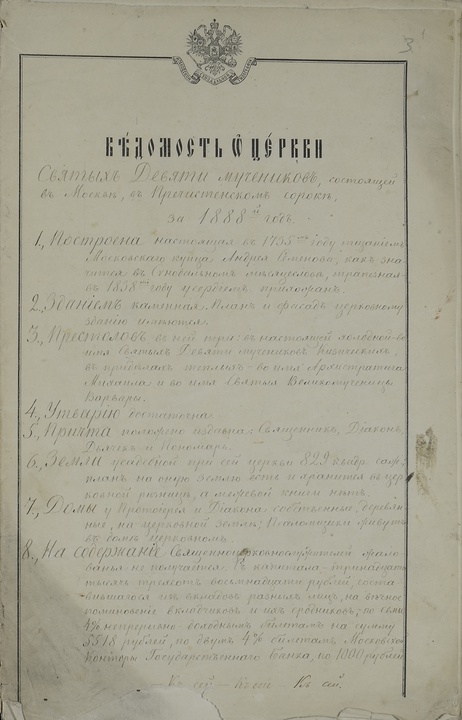 3
ВѢДОМОСТЬ Ѡ ЦЕРКВИ
Святыхъ Девяти мучениковъ, состоящей
въ Москвѣ, въ Пречистенскомъ сорокѣ,
за 1888й годъ.
1., Построена настоящая въ 1735мъ году тщаніемъ
Московскаго купца Андрея какъ зна-
чится въ Сѵнодальномъ мѣсяцесловѣ, трапезная
въ 1838мъ году усердіемъ прихожанъ.
2., Зданіемъ каменная. Планъ и фасадъ церковному
зданію имѣются.
3., Престоловъ въ ней три: въ настоящей холодной во
имя Святыхъ Девяти мучениковъ Кизическихъ,
въ придѣлахъ теплыхъ во имя Архистратига
Михаила и во имя Святыя Великомученицы
Варвары.
4., Утварію достаточна.
5., Причта положено издавна: Священникъ, Діаконъ,
Дьячекъ и Пономарь.
6., Земли усадебной при сей церкви 829 квадр. саж.;
планъ на оную землю есть и хранится въ цер-
ковной ризницѣ, а межевой книги нѣтъ.
7., Домы у Протоіерея и Діакона собственные, деревян-
ные, на церковной землѣ; Псаломщики живутъ
въ домѣ церковномъ.
8., На содержаніе Священноцерковнослужителей жало-
ванья не получается. Съ капитала тринадцати
тысячъ трехсотъ восьмнадцати рублей, соста-
вившагося изъ вкладовъ разныхъ лицъ, на вѣчное
поминовеніе вкладчиковъ и ихъ сродниковъ, по семи
4% непрерывно-доходнымъ билетамъ на сумму
5518 рублей, по двумъ 4% билетамъ Московской
Конторы Государственнаго Банка, по 1000 рублей
Къ сей — Къ сей — Къ сей.